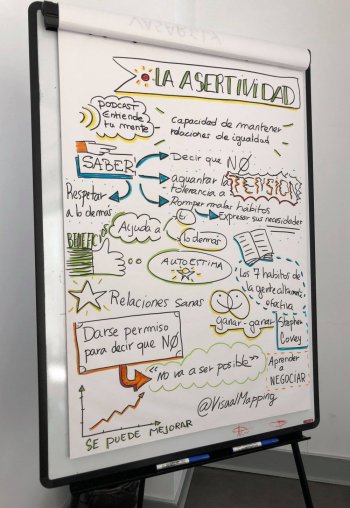 VASARELY
LA ASERTIVIDAD
PODCAST
Entiende
tu mente
capacidad de mantener
relaciones de igualdad
SABER
Decir que NO
aguantar la TENSION
tolerancia a
Romper malos hábitos
Respetar
a los demás
Expresar sus necesidades
BENEFICIOS
Ayuda a
los demás
AUTOESTIMA
Los 7 hábitos de
la gente altamente
efectiva
Relaciones Sanas
ganar-ganar
Stephen
Covey
Darse permiso
para decir que NO
"No va a ser posible"
Aprender
a
NEGOCIAR
@VisualMapping
SE PUEDE MEJORAR